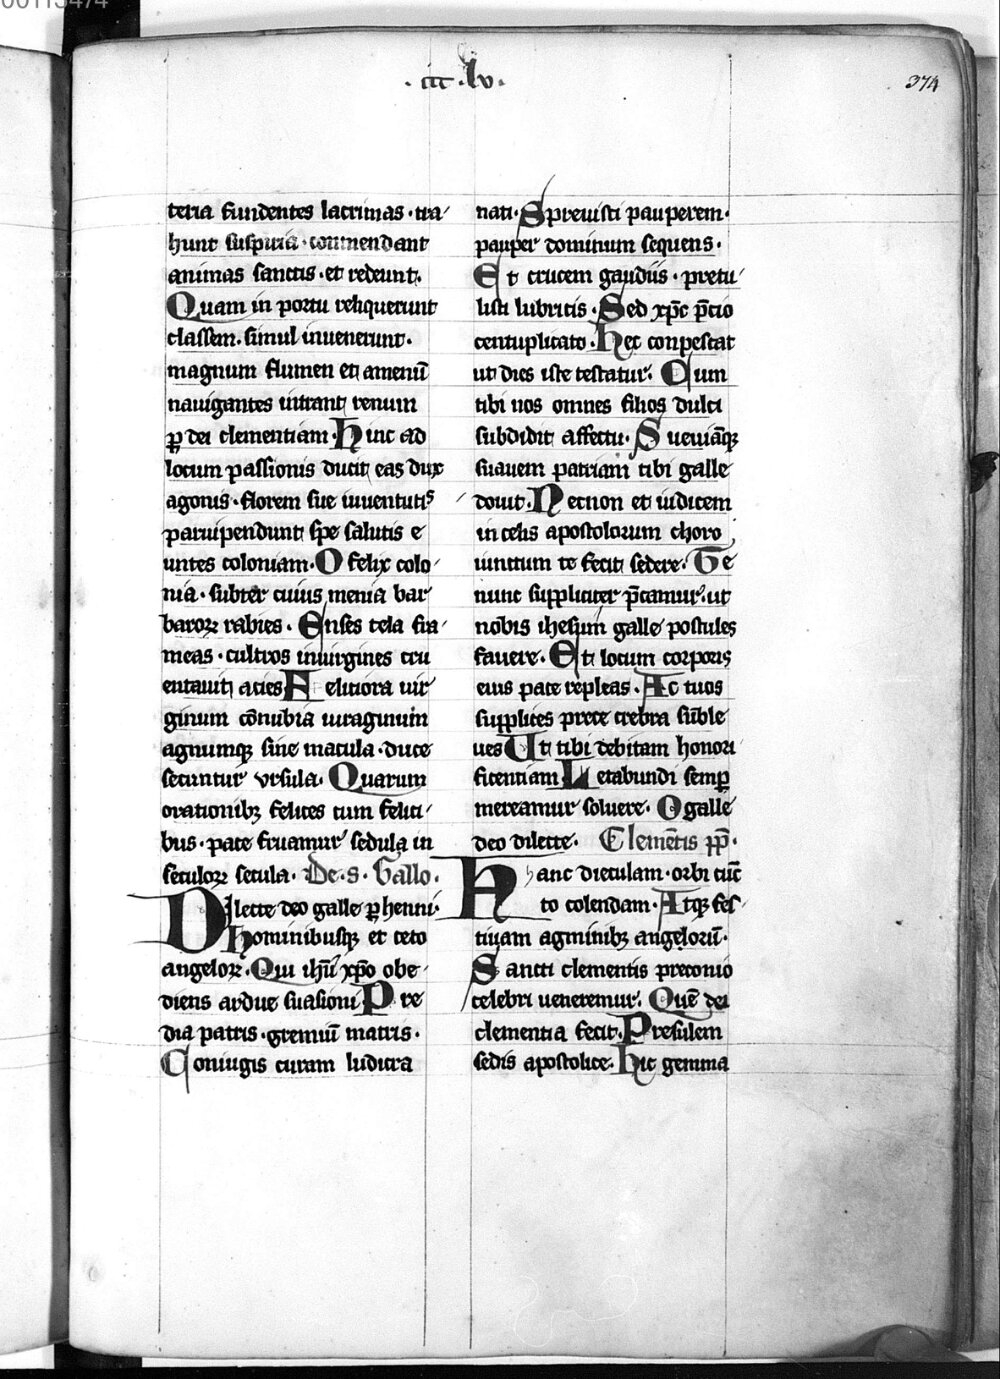 00113474
· ccc · lv ·
374
teria fundentes lacrimas · tra
hunt suspiria · commendant
animas sanctis · et redeunt.
Quam in portu reliquerunt
classem · simul inuenerunt ·
magnum flumen et amenū
nauigantes intrant renum
ꝑ dei clementiam · Hinc ad
locum passionis ducit eas dux
agonis · florem sue iuuentutis
paruipendunt spe salutis e
untes coloniam · O felix colo
nia · subter cuius menia bar
baroꝝ rabies · Enses tela fra
meas · cultros in uirgines cru
entauit acies Felitiora uir
ginum cōnubia uraginum
agnumqꝫ sine macula · duce
secuntur vrsula · Quarum
orationibꝫ felices cum felici
bus · pace fruamur sedula in
seculoꝝ secula · De · s · Gallo ·
Dilecte deo galle ꝑhenni ·
Hominibusqꝫ et ceto
angeloꝝ · Qui ihū xp̄o obe
diens ardue suasioni Pre
dia patris · gremiū matris ·
Coniugis curam ludicra
nati · Spreuisti pauperem ·
pauper dominum sequens ·
Et crucem gaudiis · pretu
listi lubricis · Sed xp̄c p̄cio
centuplicato · Hec conpescat
ut dies iste testatur. Cum
tibi nos omnes filios dulci
subdidit affectu · Sueuiāqꝫ
suauem patriam tibi galle
donit · Necnon et iudicem
in celis apostolorum choro
iunctum te fecit sedere · Te
nunc suppliciter p̄camur · ut
nobis ihesum galle postules
fauere · Et locum corporis
eius pace repleas · Ac tuos
supplices prece crebra suble
ues Ut tibi debitam honori
ficentiam Letabundi semꝑ
mereamur soluere · O galle
deo dilecte · Clemētis pp̄ ·
Hanc dieculam · orbi cūc
to colendam · Atqꝫ fes
tiuam agminibꝫ angelorū ·
Sancti clementis preconio
celebri ueneremur. Quē dei
clementia fecit · Presulem
sedis apostolice · Hic gemma